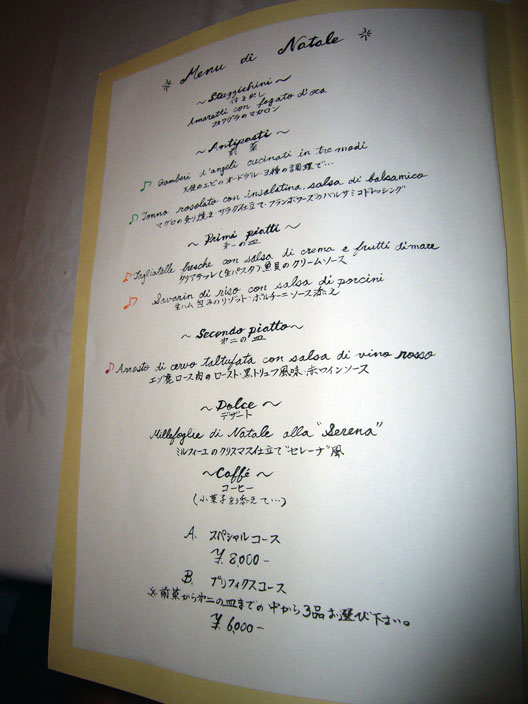 * Menu di Natale *
~Stuzzichini~
付き出し
Amaretti con fegato d'oca
フォワグラのマカロン
~Antipasti~
前菜
♪Gamberi d'angeli cucinati in tre modi
天使のエビのオードブル・3種の調理で…
♪Tonno rosolato con insalatina, salsa di balsamico
マグロの炙り焼き サラダ仕立て・フランボワーズのバルサミコドレッシング
~Primi piatti~
才一の皿
♪Tagliatelle fresche con salsa di crema e frutti di mare
タリアテッレ(生パスタ)・魚貝のクリームソース
♪Savarin di riso con salsa di porcini
生ハム包みのリゾット・ポルチーニソース添え
~Secondo piatto~
才二の皿
♪Arrosto di cervo taltufata con salsa di vino rosso
エゾ鹿ロース肉のロースト・黒トリュフ風味・赤ワインソース
~Dolce~
デザート
Millefoglie di Natale alla "Serena"
ミルフィーユのクリスマス仕立て"セレーナ"風
~Caffé~
コーヒー
(小菓子を添えて…)
A. スペシャルコース
¥8,000-
B. プリフィクスコース
※前菜から才二の皿までの中から3品お選び下さい。
¥6,000-